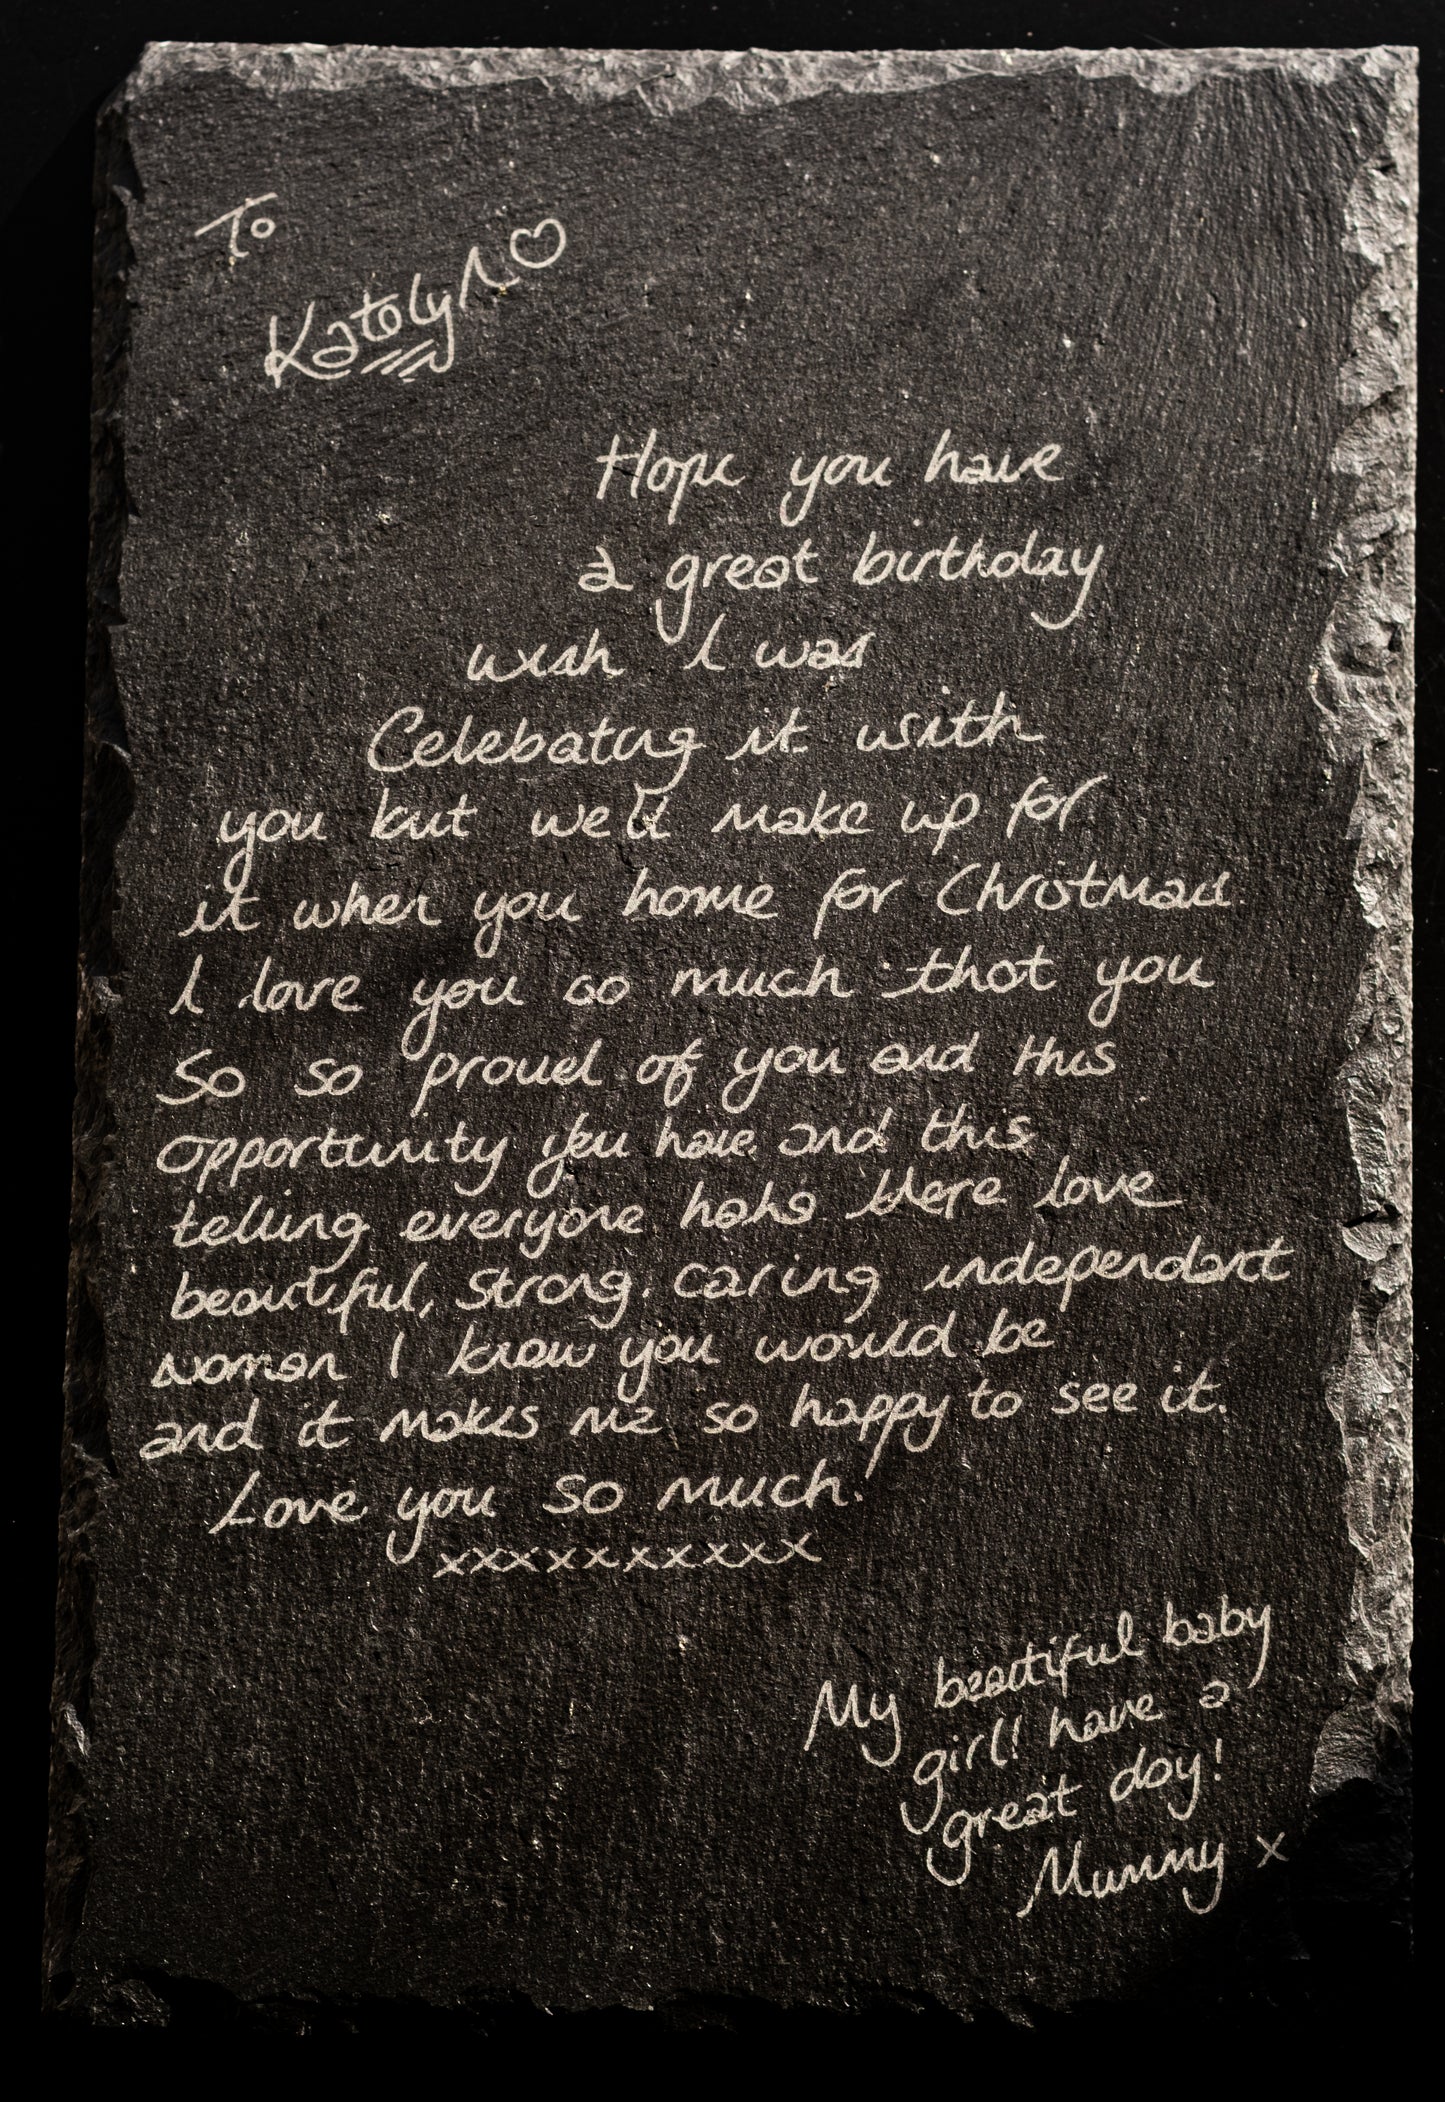 To
Katelyn ♡
Hope you have
a great birthday
wish I was
Celebatng it with
you but we'll make up for
it when you home for Christmas.
I love you so much that you
So so proud of you and this
opportunity you have and this
telling everyone haha there love
beautiful, strong. caring independant
woman I know you would be
and it makes me so happy to see it.
Love you so much!
xxxxxxxxxxx
My beautiful baby
girl! have a
great day!
Mummy x